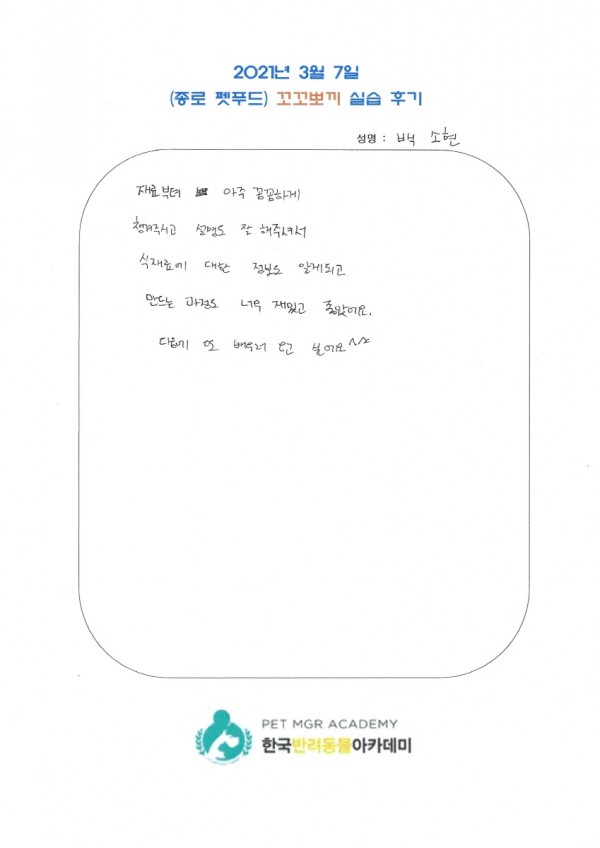 2021년 3월 7일
(종로 펫푸드) 꼬꼬뽀끼 실습 후기
성명 : 백 소현
재료부터 아주 꼼꼼하게
챙겨주시고 설명도 잘 해주셔서
식재료에 대한 정보도 알게되고
만드는 과정도 너무 재밌고 좋았어요.
다음에 또 배우러 오고 싶어요^^
PET MGR ACADEMY
한국반려동물아카데미